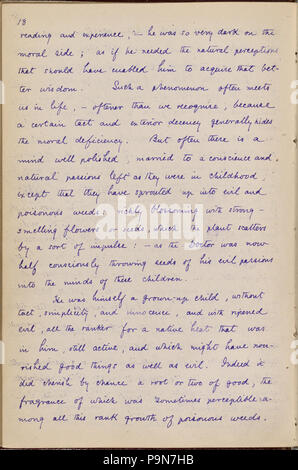 18
reading and experience, – he was so very dark on the
moral side; as if he needed the natural perceptions
that should have enabled him to acquire that bet-
ter wisdom. Such a phenomenon often meets
us in life, – oftener than we recognise, because
a certain tact and exterior decency generally hides
the moral deficiency. But often there is a
mind well polished, married to a conscience and
natural passions left as they were in childhood
except that they have sprouted up into evil and
poisonous weeds, richly blossoming with strong-
smelling flowers, or seeds, which the plant scatters
by a sort of impulse: – as the Doctor was now
half consciously throwing seeds of his evil passions
into the minds of these children.
He was himself a grown-up child, without
tact, simplicity, and innocence, and with ripened
evil, all the ranker for a native heat that was
in him, still active, and which might have nou-
rished good things as well as evil. Indeed it
did cherish by chance a root or two of good, the
fragrance of which was sometimes perceptible a-
mong all this rank growth of poisonous weeds.
alamy
Image ID: P9N7HB
www.alamy.com